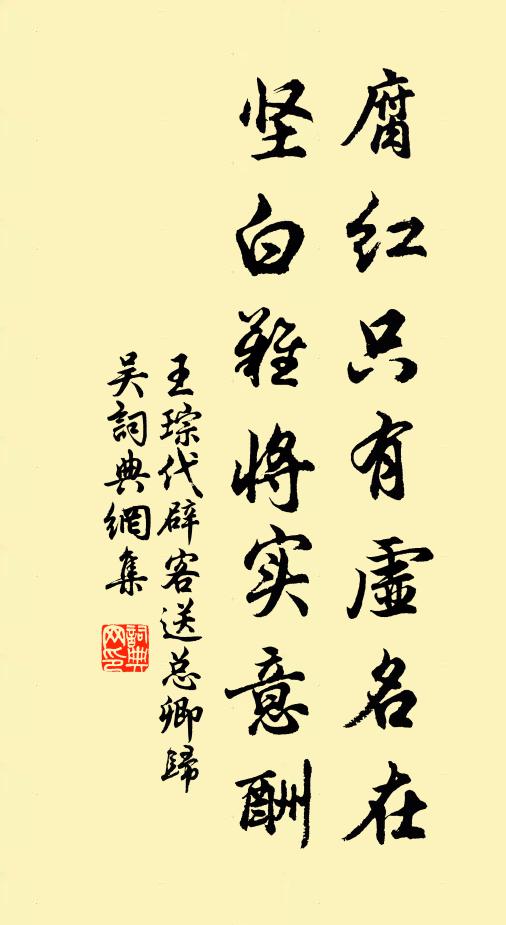 腐红只有虚名在
坚白难将实意酬
王琮代辟客送总卿歸
吴詞典網集
詞典網印